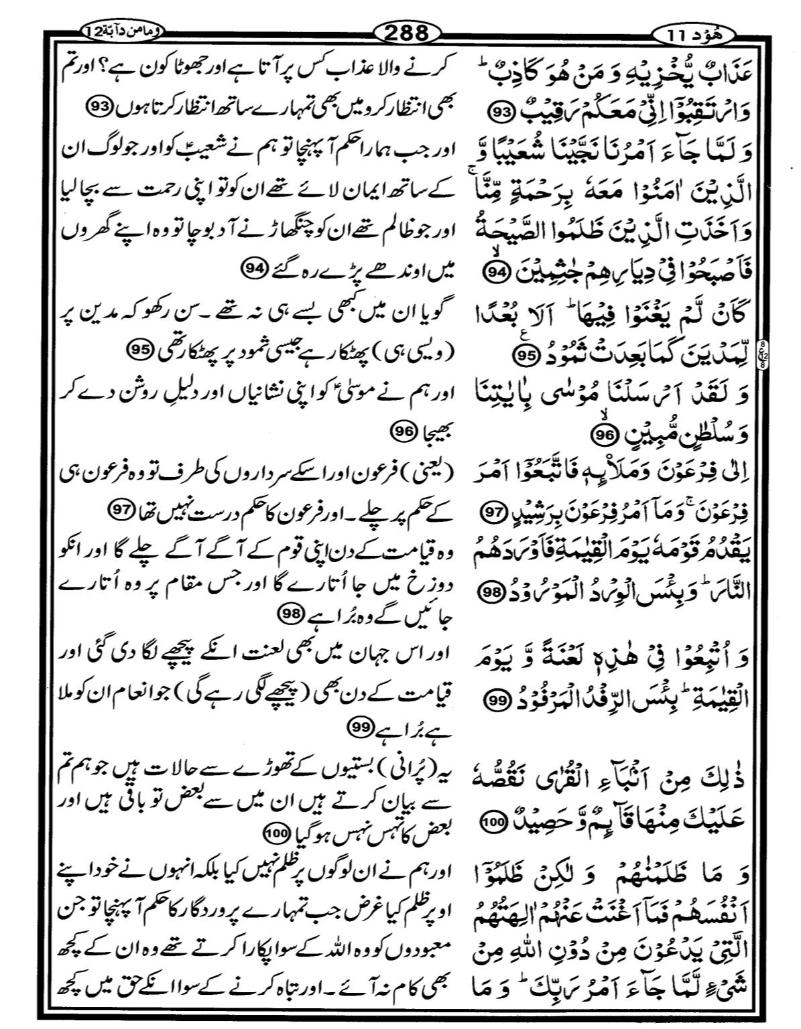 ھُوْد 11
288
وما من دآبة 12
عَذَابٌ يُّخْزِيْهِ وَ مَنْ هُوَ كَاذِبٌ ؕ
وَارْتَقِبُوْۤا اِنِّىْ مَعَكُمْ رَقِيْبٌ ﴿93﴾
وَ لَمَّا جَآءَ اَمْرُنَا نَجَّيْنَا شُعَيْبًا وَّ
الَّذِيْنَ اٰمَنُوْا مَعَهٗ بِرَحْمَةٍ مِّنَّا ۚ
وَاَخَذَتِ الَّذِيْنَ ظَلَمُوا الصَّيْحَةُ
فَاَصْبَحُوْا فِىْ دِيَارِهِمْ جٰثِمِيْنَ ۙ﴿94﴾
كَاَنْ لَّمْ يَغْنَوْا فِيْهَا ؕ اَلَا بُعْدًا
لِّمَدْيَنَ كَمَا بَعِدَتْ ثَمُوْدُ ﴿95﴾ ع
وَ لَقَدْ اَرْسَلْنَا مُوْسٰى بِاٰيٰتِنَا
وَسُلْطٰنٍ مُّبِيْنٍ ۙ﴿96﴾
اِلٰى فِرْعَوْنَ وَمَلَا۟ئِهٖ فَاتَّبَعُوْۤا اَمْرَ
فِرْعَوْنَ ۚ وَمَاۤ اَمْرُ فِرْعَوْنَ بِرَشِيْدٍ ﴿97﴾
يَقْدُمُ قَوْمَهٗ يَوْمَ الْقِيٰمَةِ فَاَوْرَدَهُمُ
النَّارَ ؕ وَ بِئْسَ الْوِرْدُ الْمَوْرُوْدُ ﴿98﴾
وَ اُتْبِعُوْا فِىْ هٰذِهٖ لَعْنَةً وَّ يَوْمَ
الْقِيٰمَةِ ؕ بِئْسَ الرِّفْدُ الْمَرْفُوْدُ ﴿99﴾
ذٰلِكَ مِنْ اَنْۢبَآءِ الْقُرٰى نَقُصُّهٗ
عَلَيْكَ مِنْهَا قَآئِمٌ وَّ حَصِيْدٌ ﴿100﴾
وَ مَا ظَلَمْنٰهُمْ وَ لٰكِنْ ظَلَمُوْۤا
اَنْفُسَهُمْ فَمَاۤ اَغْنَتْ عَنْهُمْ اٰلِهَتُهُمُ
الَّتِىْ يَدْعُوْنَ مِنْ دُوْنِ اللّٰهِ مِنْ
شَىْءٍ لَّمَّا جَآءَ اَمْرُ رَبِّكَ ؕ وَ مَا
کرنے والا عذاب کس پر آتا ہے اور جھوٹا کون ہے؟ اور تم
بھی انتظار کرو میں بھی تمہارے ساتھ انتظار کرتا ہوں ﴿93﴾
اور جب ہمارا حکم آ پہنچا تو ہم نے شعیبؑ کو اور جو لوگ ان
کے ساتھ ایمان لائے تھے ان کو تو اپنی رحمت سے بچا لیا
اور جو ظالم تھے ان کو چنگھاڑ نے آ دبوچا تو وہ اپنے گھروں
میں اوندھے پڑے رہ گئے ﴿94﴾
گویا ان میں کبھی بسے ہی نہ تھے۔ سن رکھو کہ مدین پر
(ویسی ہی) پھٹکار ہے جیسی ثمود پر پھٹکار تھی ﴿95﴾
اور ہم نے موسیٰؑ کو اپنی نشانیاں اور دلیلِ روشن دے کر
بھیجا ﴿96﴾
(یعنی) فرعون اور اسکے سرداروں کی طرف تو وہ فرعون ہی
کے حکم پر چلے۔ اور فرعون کا حکم درست نہیں تھا ﴿97﴾
وہ قیامت کے دن اپنی قوم کے آگے آگے چلے گا اور انکو
دوزخ میں جا اُتارے گا اور جس مقام پر وہ اُتارے
جائیں گے وہ بُرا ہے ﴿98﴾
اور اس جہان میں بھی لعنت انکے پیچھے لگا دی گئی اور
قیامت کے دن بھی (پیچھے لگی رہے گی) جو انعام ان کو ملا
ہے بُرا ہے ﴿99﴾
یہ (پُرانی) بستیوں کے تھوڑے سے حالات ہیں جو ہم تم
سے بیان کرتے ہیں ان میں سے بعض تو باقی ہیں اور
بعض کا تہس نہس ہو گیا ﴿100﴾
اور ہم نے ان لوگوں پر ظلم نہیں کیا بلکہ انہوں نے خود اپنے
اوپر ظلم کیا غرض جب تمہارے پروردگار کا حکم آ پہنچا تو جن
معبودوں کو وہ اللہ کے سوا پکارا کرتے تھے وہ ان کے کچھ
بھی کام نہ آئے۔ اور تباہ کرنے کے سوا انکے حق میں کچھ